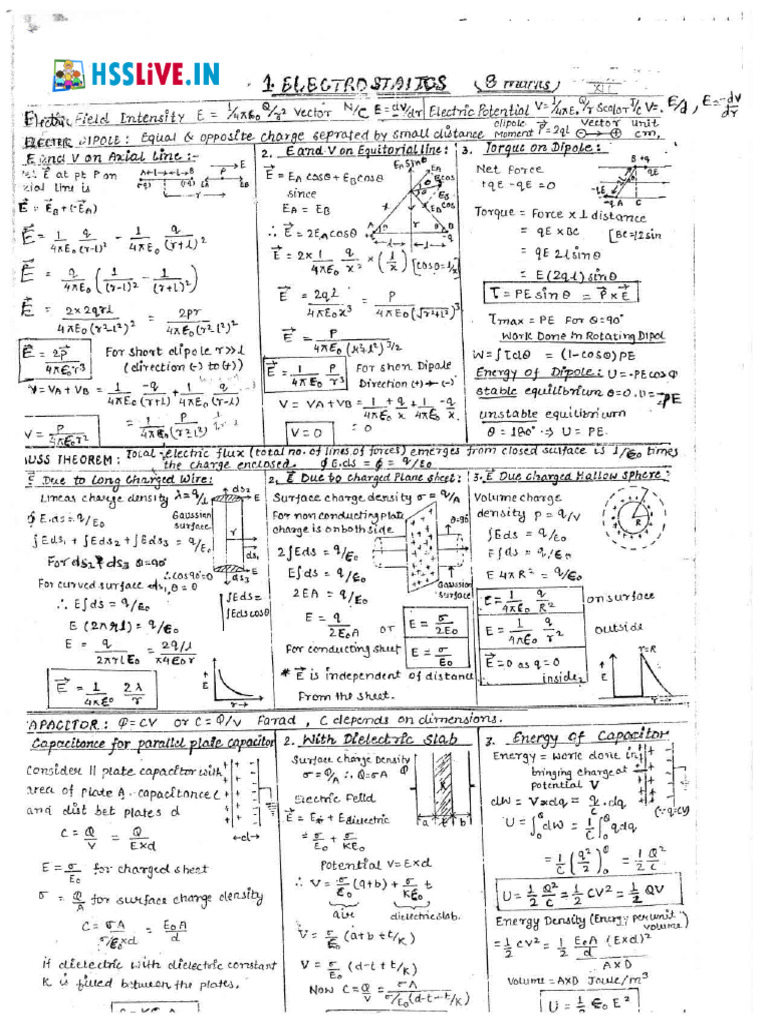 HSSLiVE.IN
1. ELECTROSTAITCS (8 marks) XII
Electric Field Intensity E = 1/4πE₀ Q/r² Vector N/C E = dV/dr Electric Potential V = 1/4πE₀ Q/r Scalor J/C V = E/d, E = -dv/dr
ELECTRIC DIPOLE: Equal & opposite charge seprated by small distance dipole Moment P = 2ql vector unit cm,
E and V on Axial line :-
E at pt P on
xial line is
E = E_B + (-E_A)
E = 1/4πE₀ q/(r-l)² - 1/4πE₀ q/(r+l)²
E = q/4πE₀ (1/(r-l)² - 1/(r+l)²)
E = 2x2qrl/4πE₀(r²-l²)² = 2pr/4πE₀(r²-l²)²
E = 2P/4πE₀r³ For short dipole r>>l
(direction (-) to (+))
V = VA + VB = 1/4πE₀ -q/(r+l) + 1/4πE₀ q/(r-l)
= 1/4πE₀ P/(r²-l²)
V = P/4πE₀r²
2. E and V on Equitorial line:
E = E_A cosθ + E_B cosθ
since
E_A = E_B
∴ E = 2E_A cosθ
E = 2x 1/4πE₀ q/x² x (l/x) [cosθ = l/x]
E = 2ql/4πE₀x³ = P/4πE₀(√r²+l²)³
E = P/4πE₀(r²+l²)3/2
E = 1/4πE₀ P/r³ For shon Dipole
Direction (+) → (-)
V = VA + VB = 1/4πE₀ +q/x + 1/4πE₀ -q/x
V = 0 = 0
3. Torque on Dipole:
Net Force
+qE -qE = 0
Torque = Force x ⊥ distance
= qE x BC [BC = l2sin
= qE 2l sinθ
= E (2ql) sinθ
τ = PE sin θ = P x E
τmax = PE For θ = 90°
Work Done in Rotating Dipol
W = ∫τdθ = (1-cosθ) PE
Energy of Dipole: U = -PE cos
stable equilibrium θ = 0. U = -PE
unstable equitirium
θ = 180° → U = PE.
USS THEOREM: Total electric flux (total no. of lines of forces) emerges from closed surface is 1/E₀ times
the charge enclosed. ∮E.ds = ϕ = q/E₀
E Due to Long Charged Wire:
Linear charge density λ = q/l
∮E.ds = q/E₀ Gaussian surface
∫Eds₁ + ∫Eds₂ + ∫Eds₃ = q/E₀
For ds₂ & ds₃ θ = 90°
∴ cos90° = 0
For curved surface ds₁, θ = 0
∴ E∫ds = q/E₀ ∫Eds = ∫Eds cosθ
E (2πrl) = q/E₀
E = q/2πrlE₀ = 2q/l/π4E₀r
E = 1/4πE₀ 2λ/r
2. E Due to charged Plane sheet:
Surface charge density σ = q/A
For non conducting plate
charge is on both side
θ = 90°
2∫Eds = q/E₀
E∫ds = q/E₀
2EA = q/E₀ Gaussian surface
E = q/2E₀A or E = σ/2E₀
For conducting sheet E = σ/E₀
* E is independent of distance
From the sheet.
3. E Due charged Hallow sphere:
Volume charge
density ρ = q/V
∫Eds = q/E₀
E∫ds = q/E₀
E 4πR² = q/E₀
E = 1/4πE₀ q/R² on surface
E = 1/4πE₀ q/r² outside
E = 0 as q = 0 inside
r=R
APACITOR: Q = CV or C = Q/V Farad, C depends on dimensions.
Capacitance for parallel plate capacitor
Consider ll plate capacitor with
area of plate A. capacitance C
and dist bet plates d
C = Q/V = Q/Exd
E = σ/E₀ for charged sheet
σ = Q/A for surface charge density
C = σA/σ/E₀xd = E₀A/d
if dielectric with dielectric constant
K is filled between the plates.
2. With Dielectric Slab
Surface charge Density
σ = Q/A ∴ Q = σA
Electric Feild
E = E₀ + E dielectric
= σ/E₀ + σ/KE₀
Potential V = Exd
∴ V = σ/E₀ (a+b) + σ/KE₀ t
air dielectric slab.
V = σ/E₀ (a+b+t/K)
V = σ/E₀ (d-t+t/K)
Now C = Q/V = σA/σ/E₀(d-t-t/K)
3. Energy of Capacitor
Energy = work done in
bringing charge at
potential V
dW = Vxdq = q/C.dq (∵ q=CV)
U = ∫dW = 1/C ∫qdq
= 1/C (q²/2) = 1/2 Q²/C
U = 1/2 Q²/C = 1/2 CV² = 1/2 QV
Energy Density (Energy per unit volume)
= 1/2 CV² = 1/2 E₀A/d (Exd)²/AXD
Volume = AXD Joule/m³
U = 1/2 E₀ E²